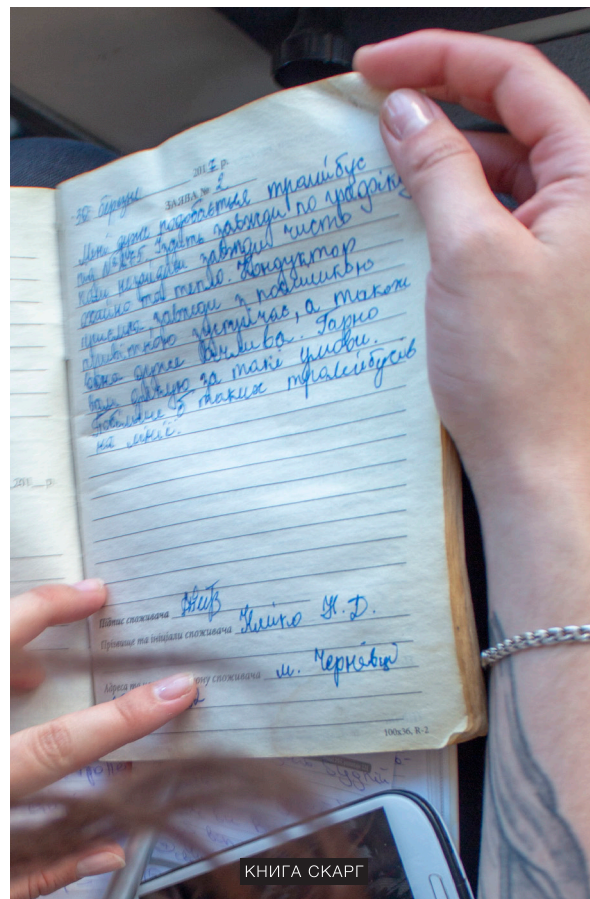 30 березня 2017 р.
ЗАЯВА № 2
Мені дуже подобається тролейбус
під № Їздить завжди по графіку
завжди чисто
охайно та тепло. Кондуктор
приємна, завжди з посмішкою
привітною зустрічає, а також
вона дуже Гарно
вам дякую за такі умови.
Побільше б таких тролейбусів
на лінії.
201 р.
Підпис споживача
Прізвище та ініціали споживача Клійко Н. Д.
Адреса та ону споживача м. Чернівці
100х36, R-2
КНИГА СКАРГ